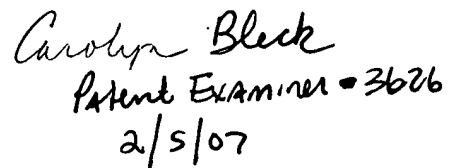 Carolyn Bleck
Patent Examiner - 3626
2/5/07